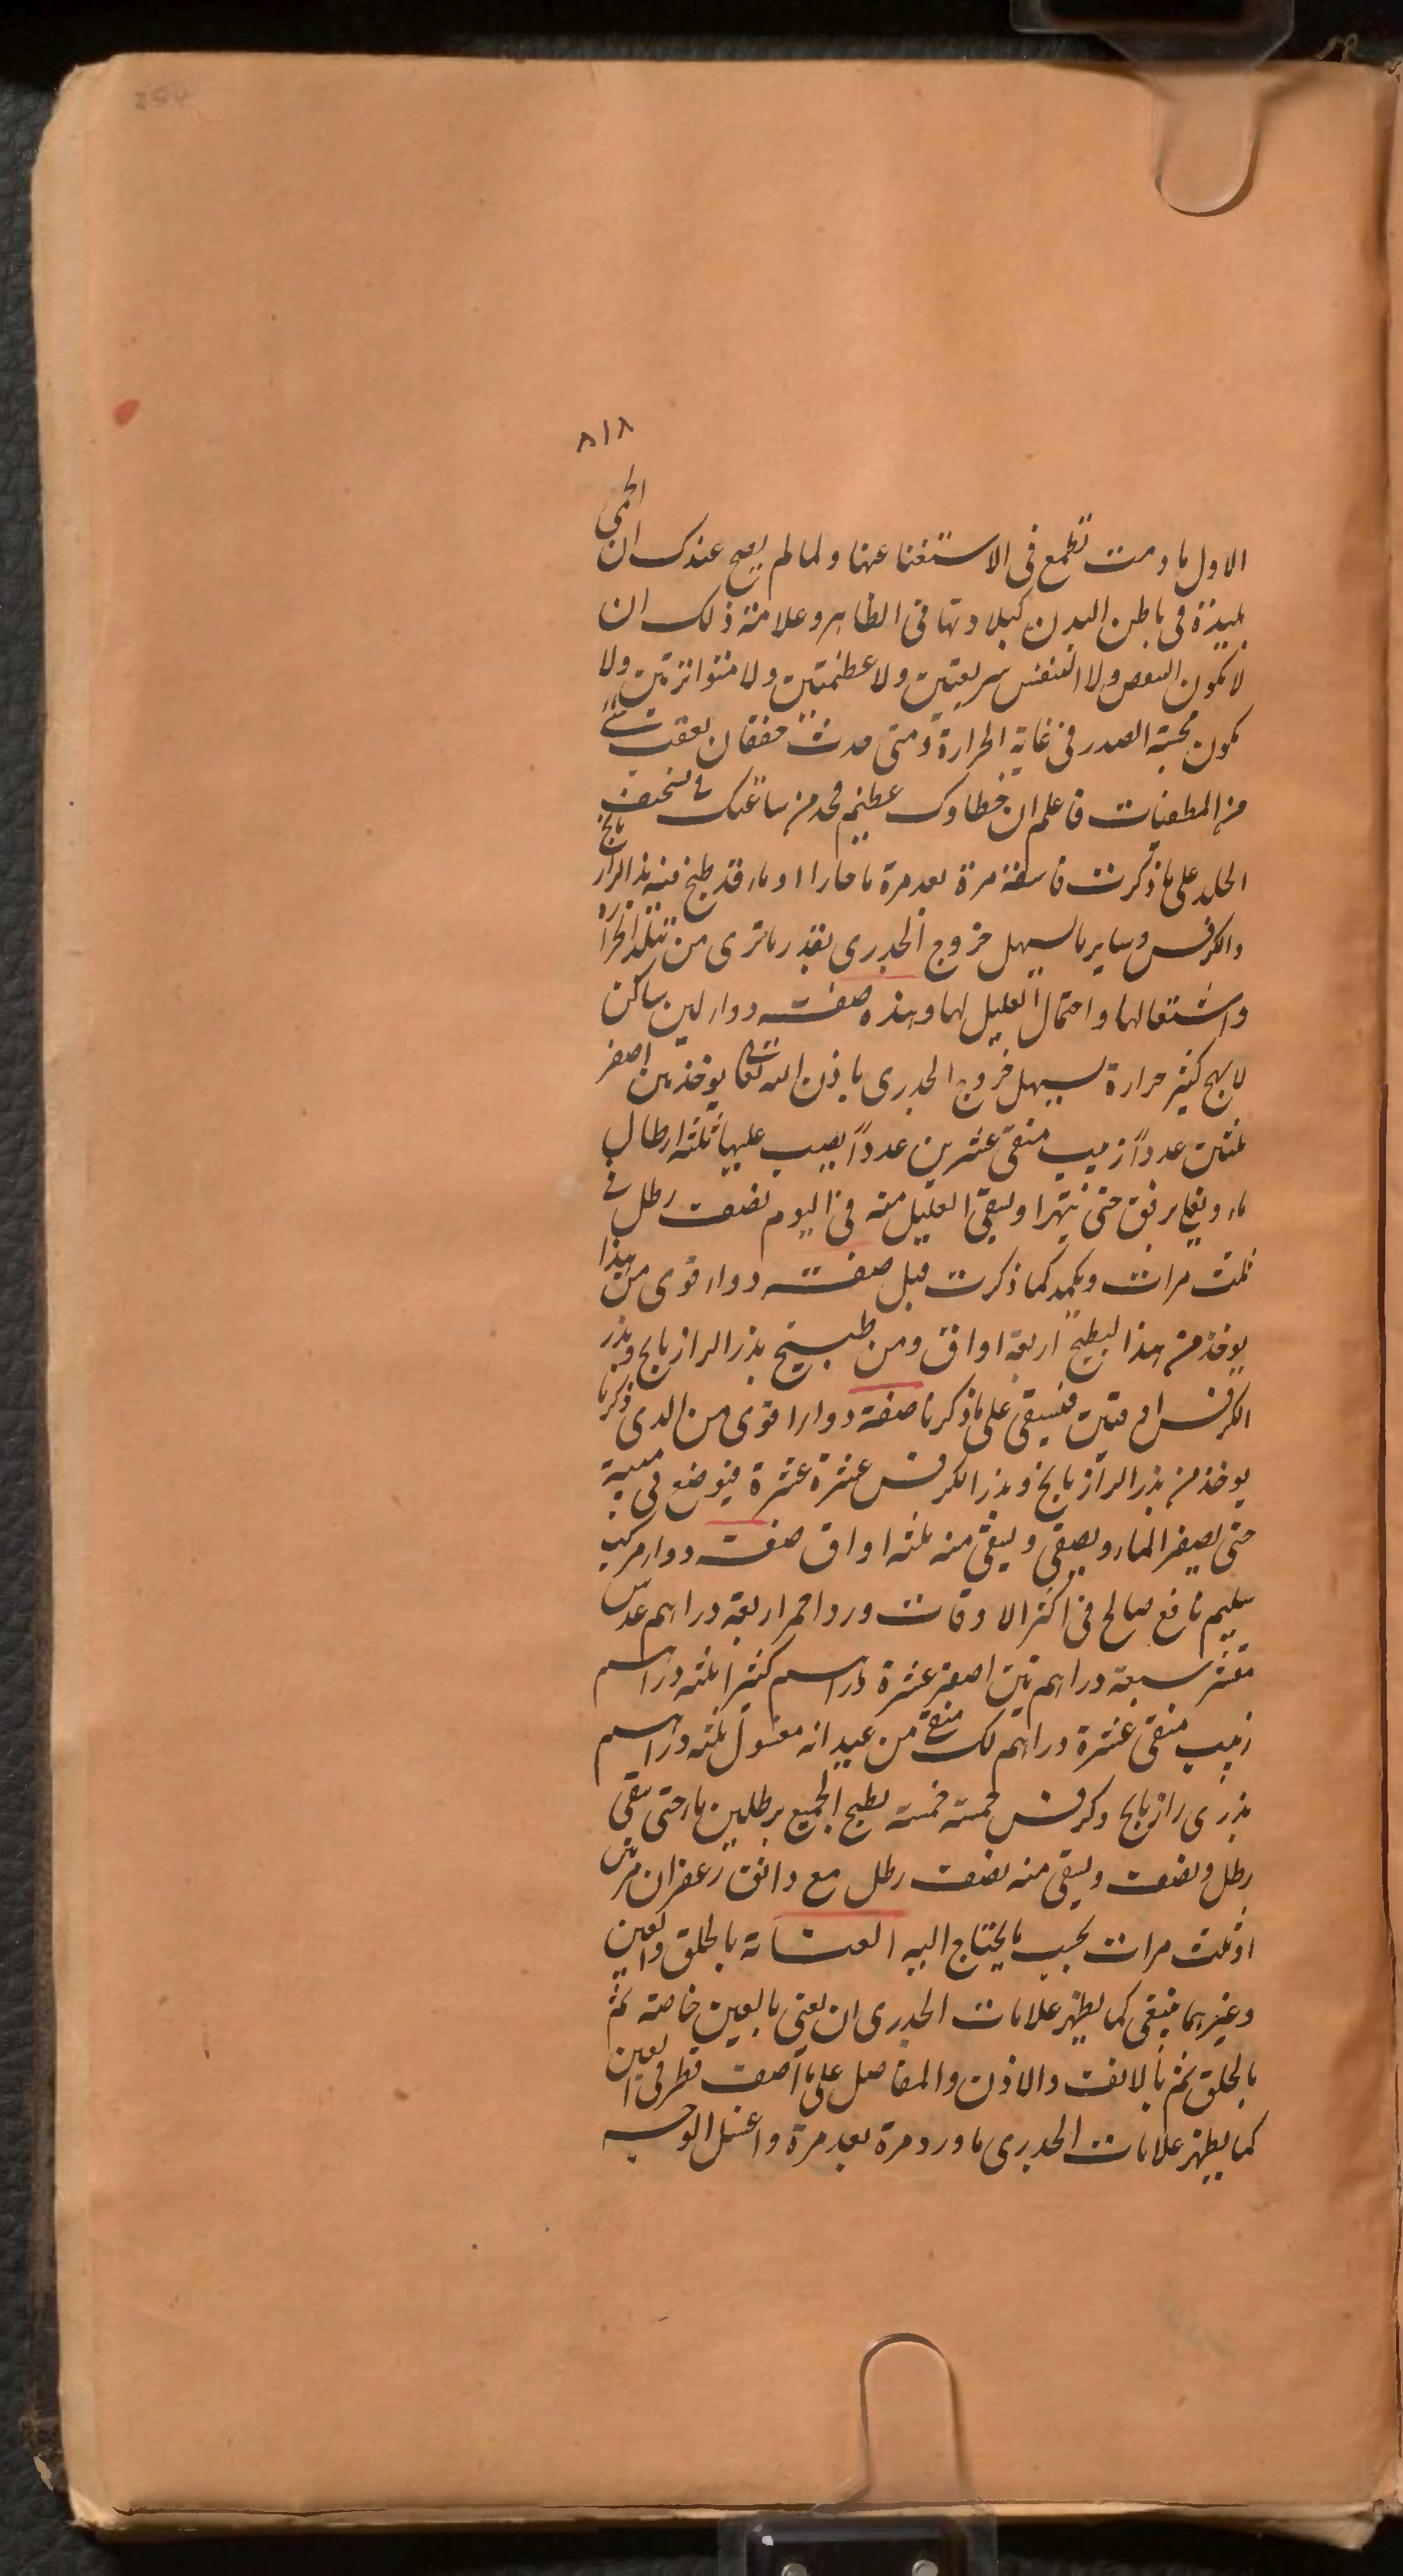 294
٨١٨
الاول مادمت تطمع فى الاستغنا عنها ولما لم يصح عندك ان الحمى
بليدة فى باطن البدن كبلادتها فى الظاهر وعلامة ذلك ان
لا يكون النبض ولا التنفس سريعتين ولا عظيمتين ولا متواترتين ولا
يكون مجسة الصدر فى غاية الحرارة ومتى حدث خفقان بعقب شئ
من المطفيات فاعلم ان خطاوك عظيم فخذ من ساعتك فى تسخيف
الجلد على ما ذكرت فاسقه مرة بعد مرة ما حارا او ماء قد طبخ فيه بذر الرازيانج
والكرفس وساير ما يسهل خروج الجدرى بقدر ما ترى من تبلد الحرارة
واشتعالها واحتمال العليل لها وهذه صفت دواء لين ساكن
لا يهيج كثير حرارة يسهل خروج الجدرى باذن الله تعالى يوخذ تين اصفر
ثلثين عدداً زبيب منقى عشرين عدداً يصب عليها ثلثه ارطال
ماء ويغلى برفق حتى يتهرا ويسقى العليل منه فى اليوم نصف رطل فى
ثلث مرات ويكمد كما ذكرت قبل صفت دواء قوى من هذا
يوخذ من هذا لطبيخ اربعة اواق ومن طبيخ بذر الرازيانج وبذر
الكرفس اوقيتين فيسقى على ما ذكرنا صفة دواء اقوى من الدى ذكرنا
يوخذ من بذر الرازيانج وبذر الكرفس عشرة عشرة فيوضع فى
حتى يصفر الماء ويصفى ويسقى منه ثلثه اواق صفت دواء مركب
سليم نافع صالح فى اكثر الاوقات ورد احمر اربعة دراهم عدس
مقشر سبعة دراهم تين اصفر عشرة دراهم كثيرا ثلثه دراهم
زبيب منقى عشرة دراهم لك منقى من عيدانه مغسول ثلثه دراهم
بذرى رازيانج وكرفس خمسة خمسة يطبخ الجميع برطلين ماء حتى يبقى
رطل ونصف ويسقى منه نصف رطل مع دانق زعفران مرتين
او ثلث مرات بحسب ما يحتاج اليه العناية بالحلق والعين
وغيرهما ينبغى كما يظهر علامات الجدرى ان يعنى بالعين خاصة ثم
بالحلق ثم بالانف والاذن والمفاصل على ما اصف قطر فى العين
كما يظهر علامات الجدرى ماورد مرة بعد مرة واغسل الوجه